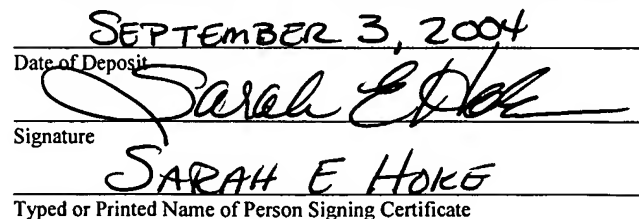 SEPTEMBER 3, 2004
Date of Deposit
Sarah E Hoke
Signature
SARAH E HOKE
Typed or Printed Name of Person Signing Certificate